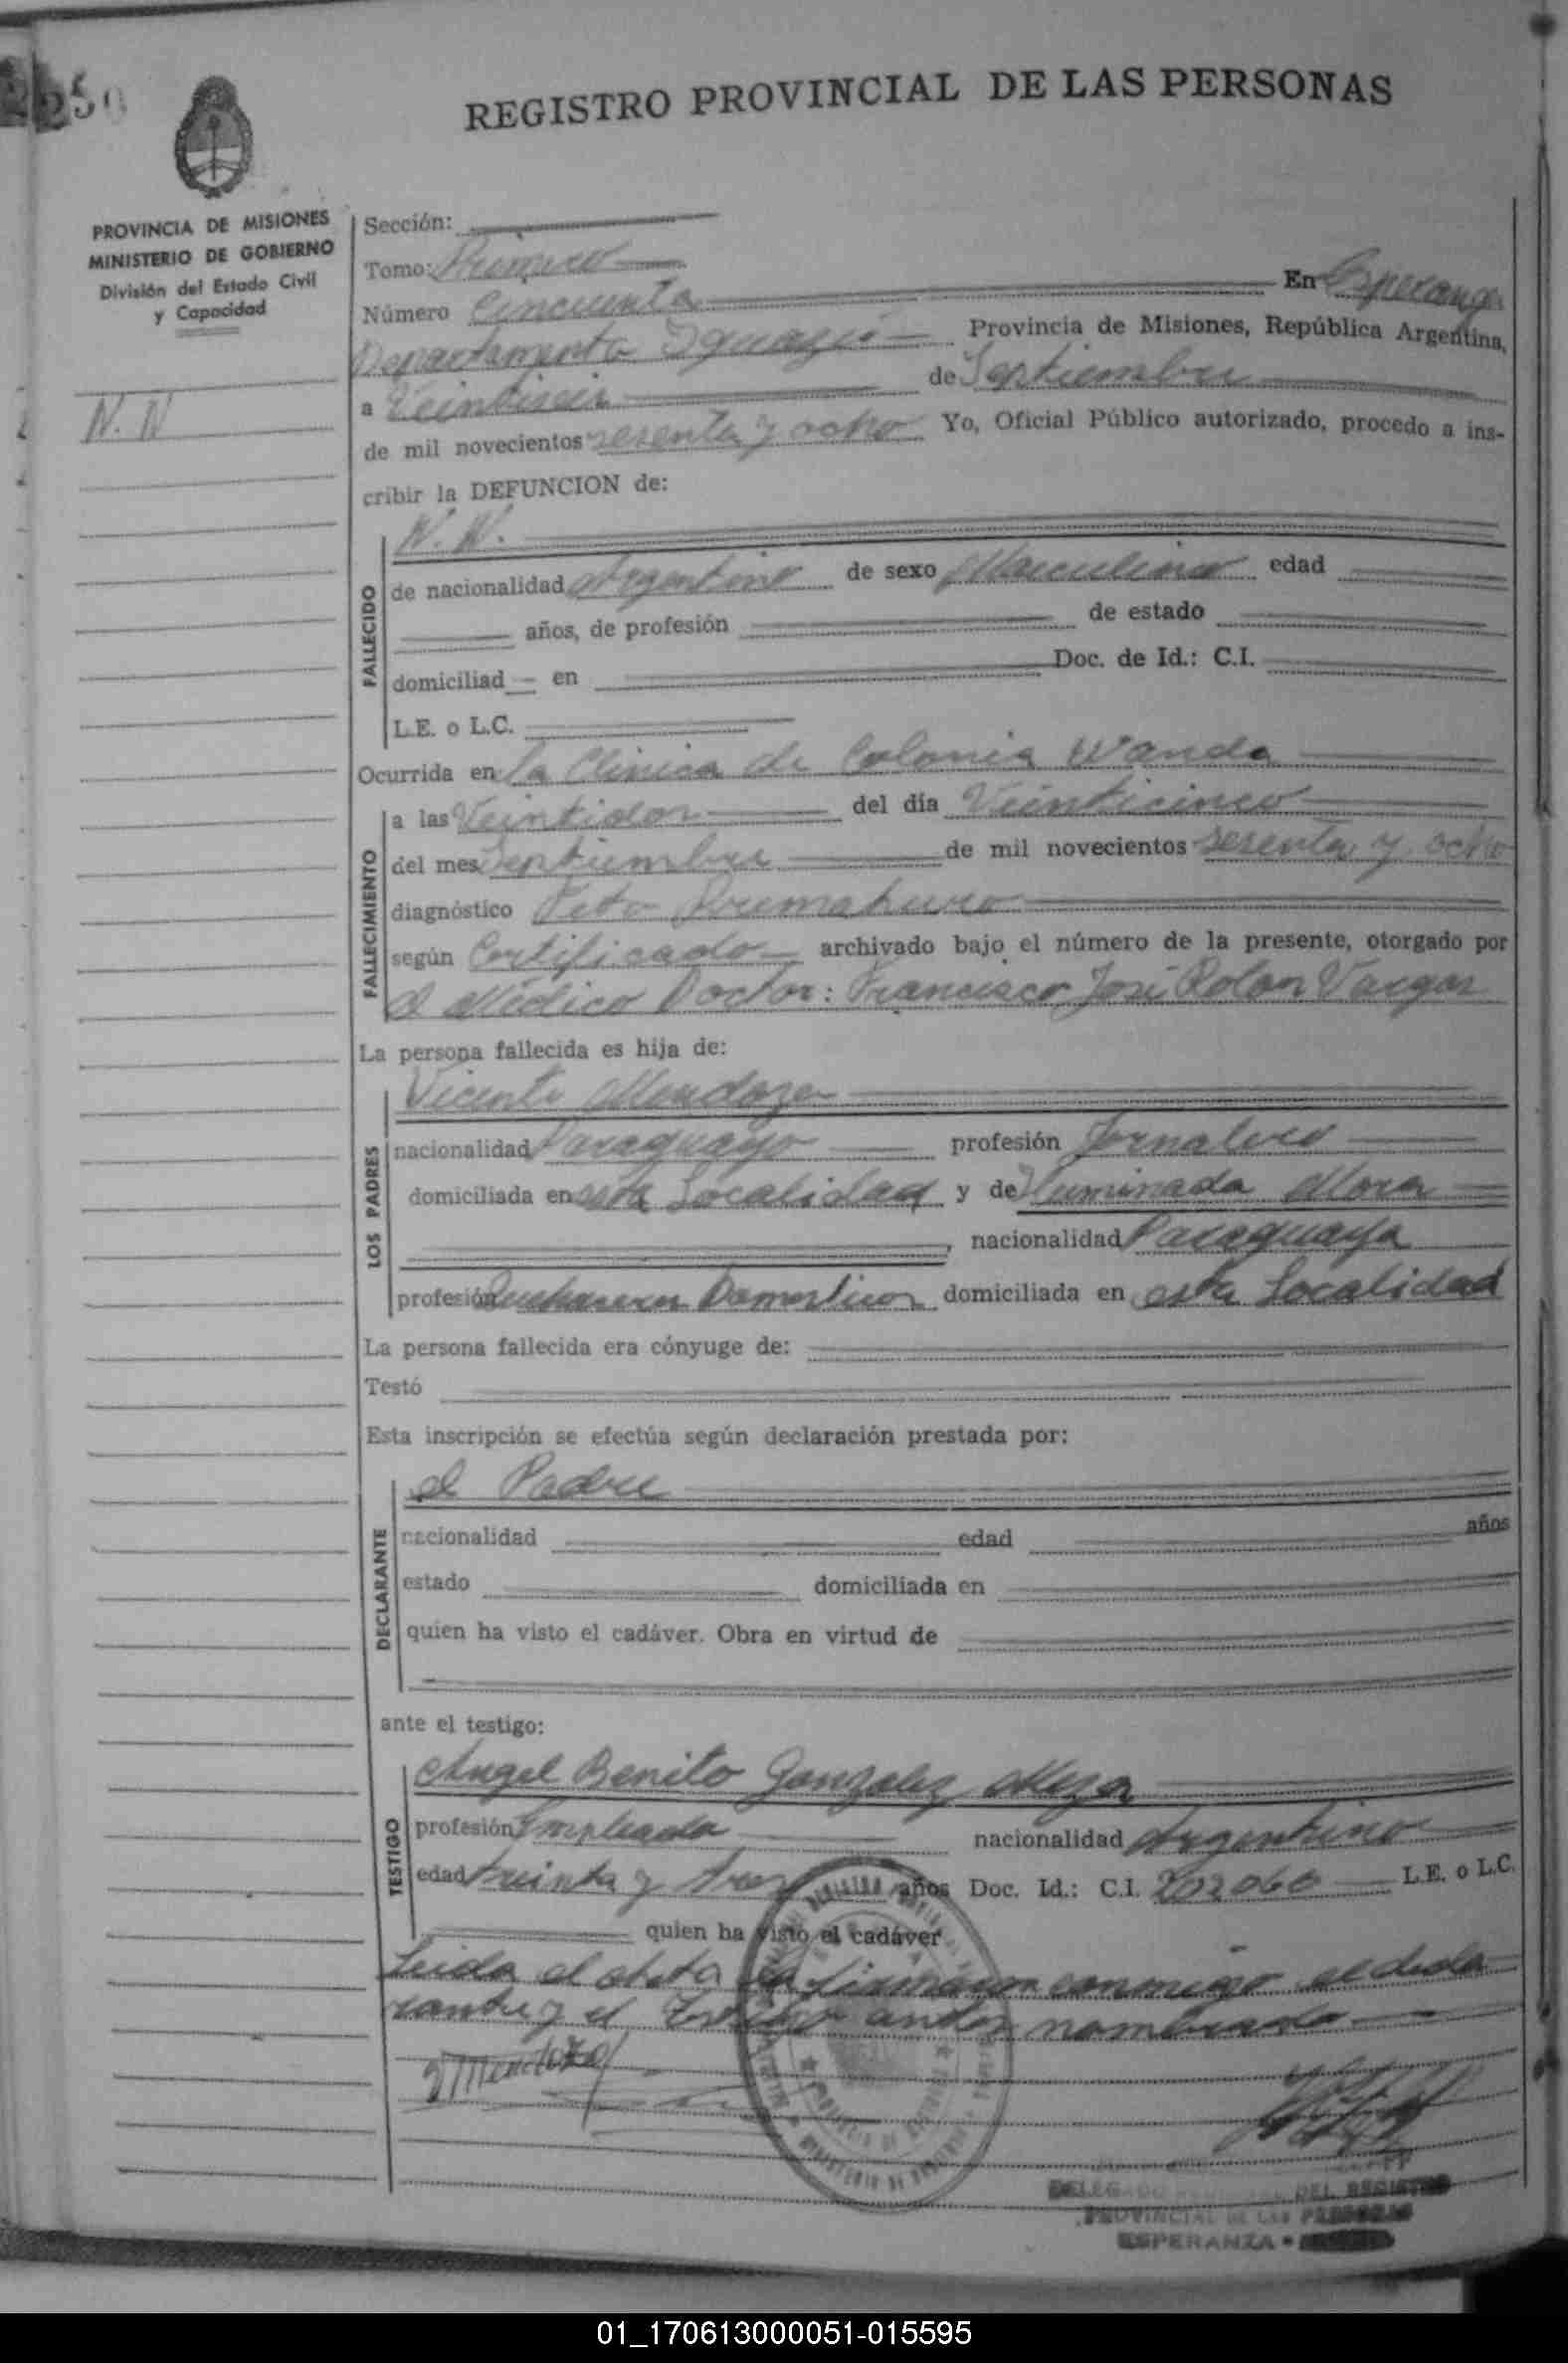 50
REGISTRO PROVINCIAL DE LAS PERSONAS
PROVINCIA DE MISIONES
MINISTERIO DE GOBIERNO
División del Estado Civil
y Capacidad
N. N
Sección:
Tomo: Primero
Número Cincuenta En Esperanza
Departamento Iguazú Provincia de Misiones, República Argentina,
a Veintiseis de Septiembre
de mil novecientos sesenta y ocho Yo, Oficial Público autorizado, procedo a ins-
cribir la DEFUNCION de:
FALLECIDO
N. N.
de nacionalidad Argentino de sexo Masculino edad
años, de profesión de estado
domiciliad en Doc. de Id.: C.I.
L.E. o L.C.
Ocurrida en la Clinica de Colonia Wanda
FALLECIMIENTO
a las Veintidos del día Veinticinco
del mes Septiembre de mil novecientos sesenta y ocho
diagnóstico Feto Prematuro
según Certificado archivado bajo el número de la presente, otorgado por
el Médico Doctor: Francisco José Rolon Vargas
La persona fallecida es hija de:
LOS PADRES
Vicente Mendoza
nacionalidad Paraguayo profesión Jornalero
domiciliada en esta Localidad y de Iluminada Mora
, nacionalidad Paraguaya
profesión Quehaceres Domesticos domiciliada en esta Localidad
La persona fallecida era cónyuge de:
Testó
Esta inscripción se efectúa según declaración prestada por:
DECLARANTE
el Padre
nacionalidad edad años
estado domiciliada en
quien ha visto el cadáver. Obra en virtud de
ante el testigo:
TESTIGO
Angel Benito Gonzalez Meza
profesión Empleado nacionalidad Argentino
edad treinta y tres años Doc. Id.: C.I. 202060 L.E. o L.C.
quien ha visto el cadáver
Leida el Acta la firmaron conmigo el decla
rante y el Testigo antes nombrado
VMendoza
DELEGADO DEL REGISTRO
PROVINCIAL DE LAS PERSONAS
ESPERANZA
01_170613000051-015595